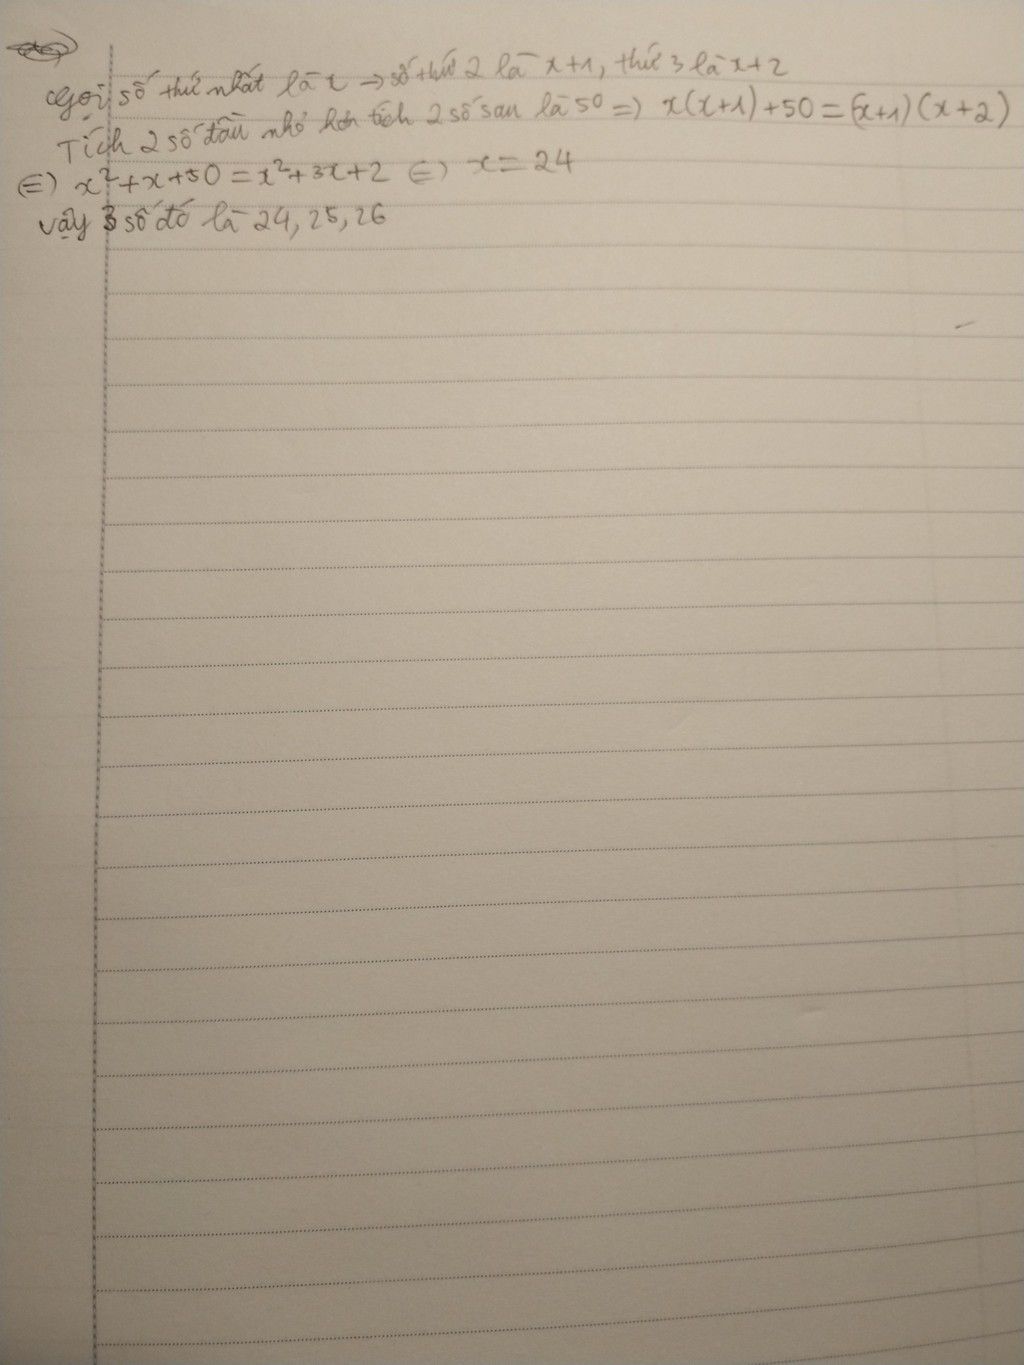 Gọi số thứ nhất là x → số thứ 2 là x+1, thứ 3 là x+2
Tích 2 số đầu nhỏ hơn tích 2 số sau là 50 => x(x+1)+50=(x+1)(x+2)
(=) x²+x+50=x²+3x+2 (=) x=24
Vậy 3 số đó là 24, 25, 26